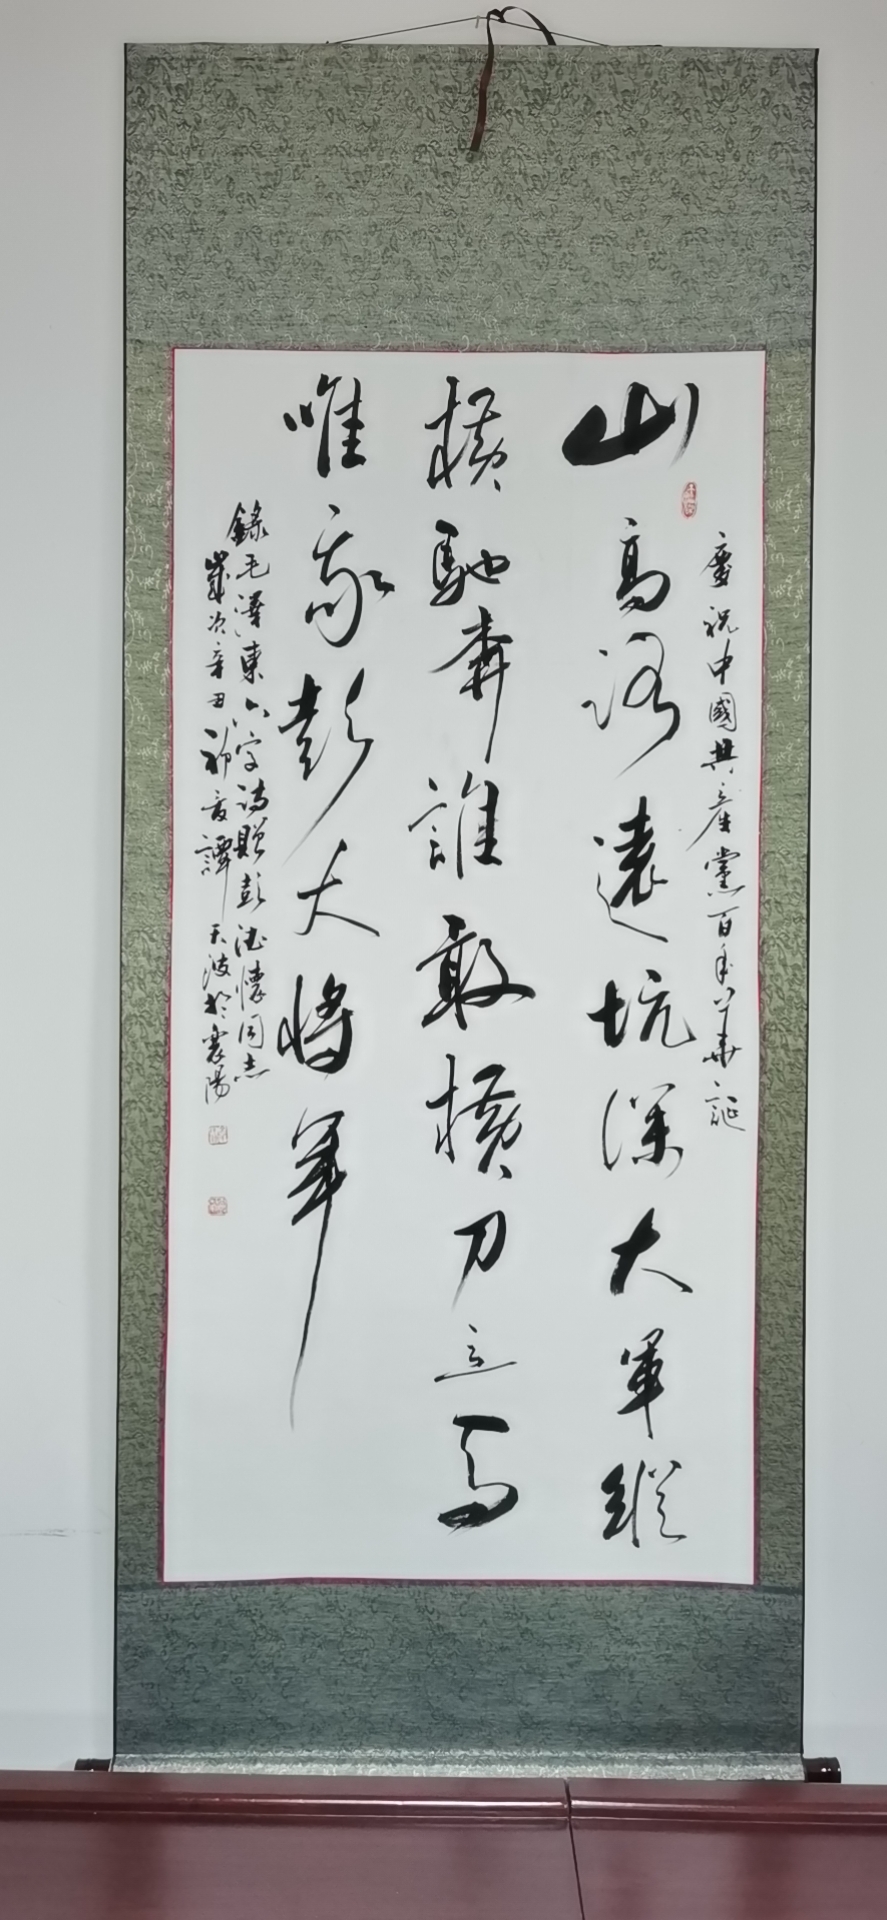 慶祝中國共產黨百年華誕
山高路遠坑深大軍縱
橫馳奔誰敢橫刀立馬
唯我彭大將軍
錄毛澤東六言詩贈彭德懷同志
歲次辛丑初夏譚天波於襄陽